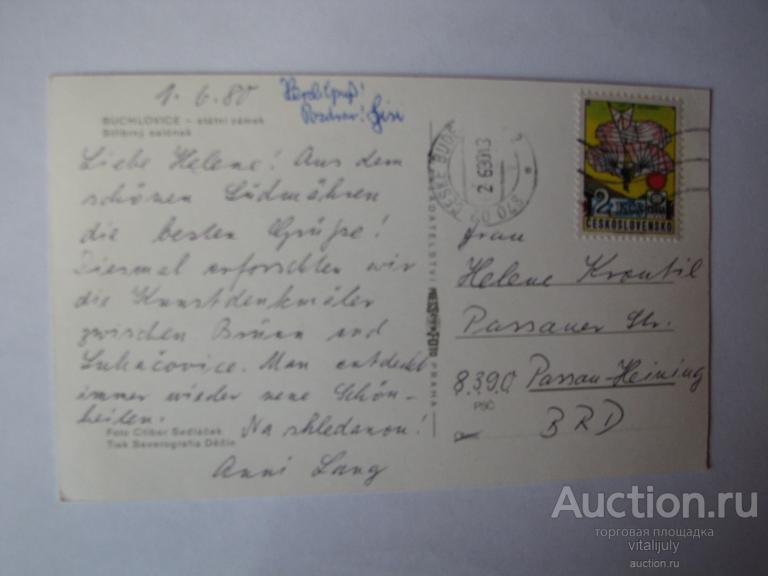 1. 6. 80
Herzl. Gruß!
Pozdrav!
BUCHLOVICE – státní zámek
Stříbrný salónek
Liebe Helene! Aus dem
schönen Südmähren
die besten Grüße!
Diesmal erforschten wir
die Kunstdenkmäler
zwischen Brünn und
Luhačovice. Man entdeckt
immer wieder neue Schön-
heiten.
Na shledanou!
Foto Ctibor Sedláček
Tisk Severografia Děčín
Anni Lang
NAKLADATELSTVÍ PRAHA
ČESKÉ BUDĚ
370 04
2
Kčs
ČESKOSLOVENSKO
Frau
Helene Kroutil
Passauer Str.
8390 Passau-Heining
PSČ
BRD
Auction.ru
торговая площадка
vitalijuly
auction.ru